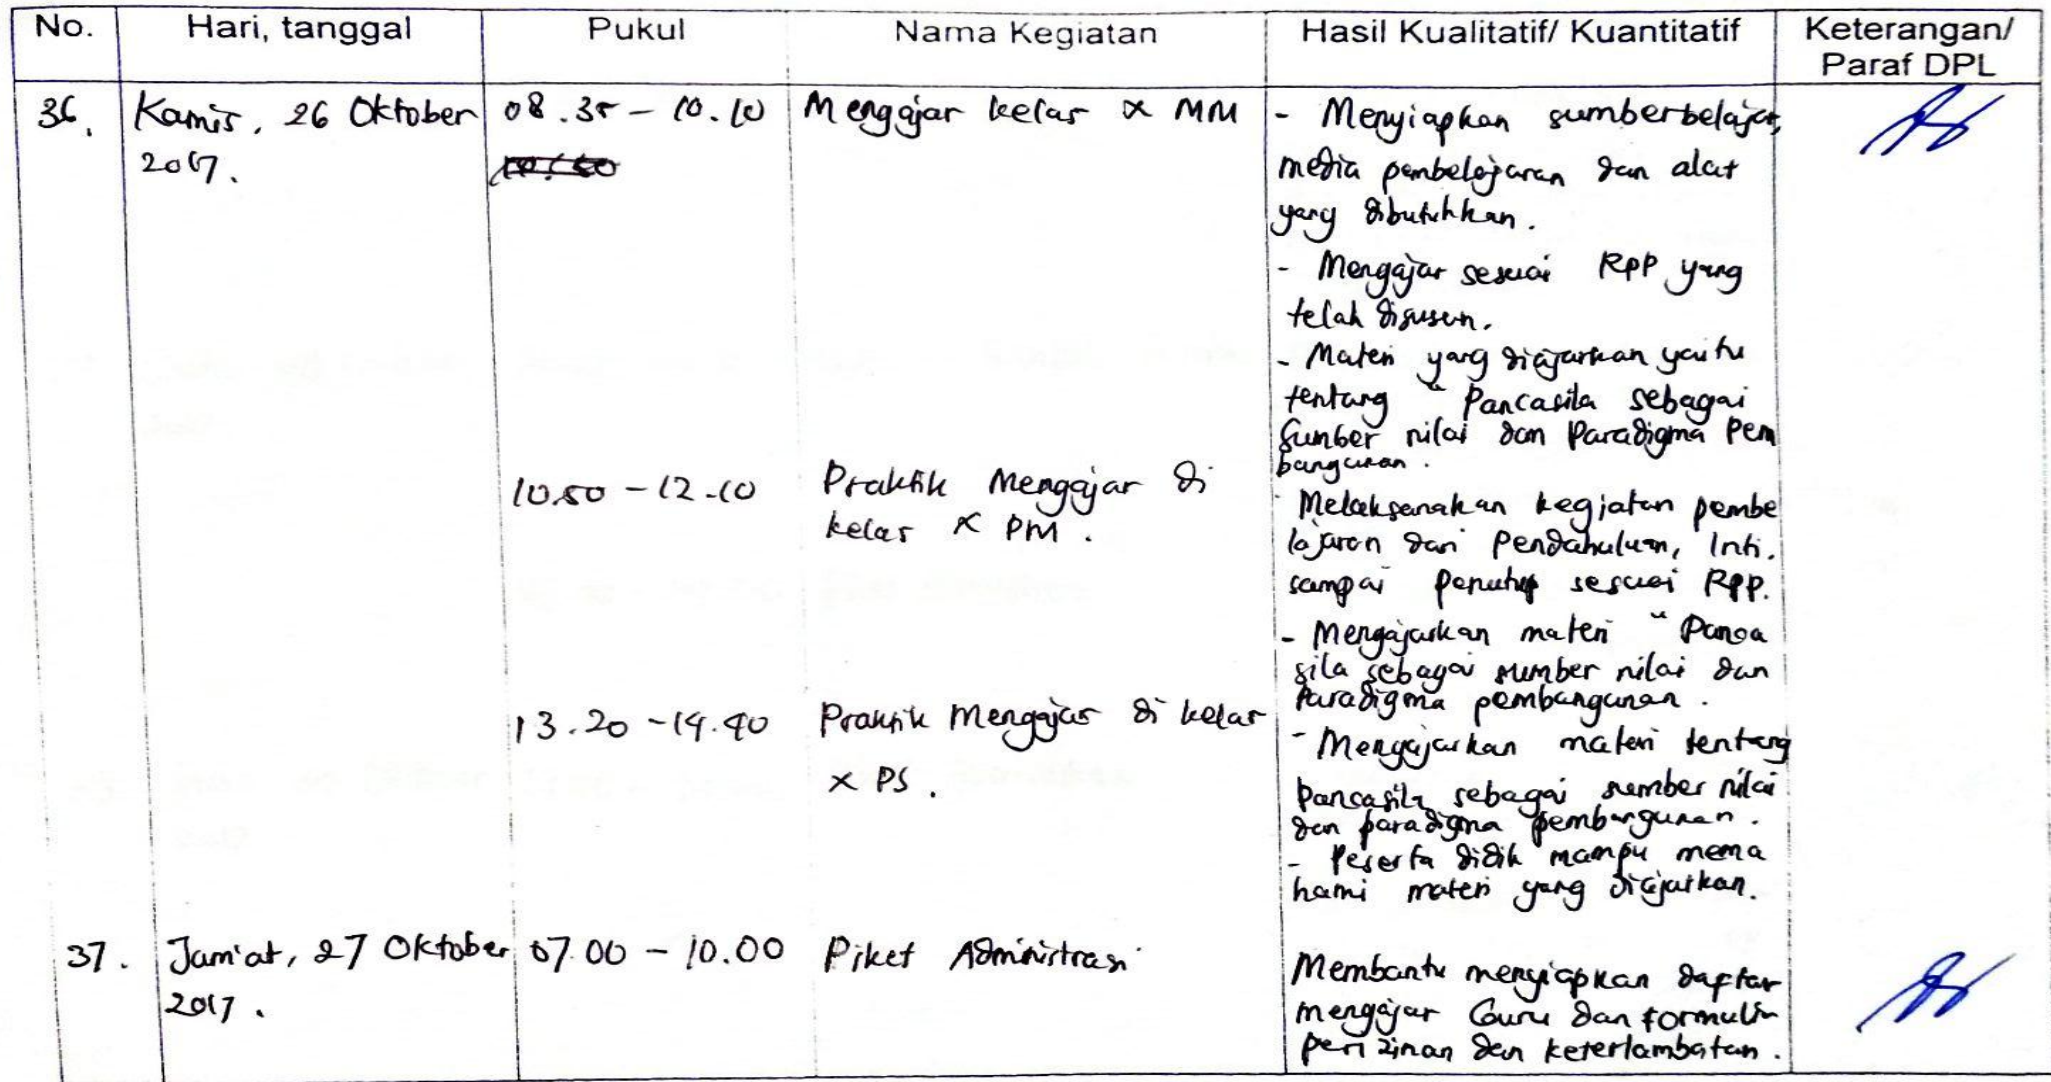 No. Hari, tanggal Pukul Nama Kegiatan Hasil Kualitatif/ Kuantitatif Keterangan/
Paraf DPL
36. Kamis, 26 Oktober 08.35 - 10.10 Mengajar kelas X MM - Menyiapkan sumber belajar,
2017. media pembelajaran dan alat
yang dibutuhkan.
- Mengajar sesuai RPP yang
telah disusun.
- Materi yang diajarkan yaitu
tentang " Pancasila sebagai
Sumber nilai dan Paradigma Pem
bangunan.
10.50 - 12.10 Praktik Mengajar di
kelas X PM.
- Melaksanakan kegiatan pembe
lajaran dari Pendahuluan, Inti,
sampai penutup sesuai RPP.
- Mengajarkan materi " Panca
sila sebagai sumber nilai dan
Paradigma pembangunan.
13.20 - 14.40 Praktik Mengajar di kelas
X PS.
- Mengajarkan materi tentang
Pancasila sebagai sumber nilai
dan paradigma pembangunan.
- Peserta didik mampu mema
hami materi yang diajarkan.
37. Jum'at, 27 Oktober 07.00 - 10.00 Piket Administrasi
2017.
Membantu menyiapkan daftar
mengajar Guru dan formulir
perizinan dan keterlambatan.